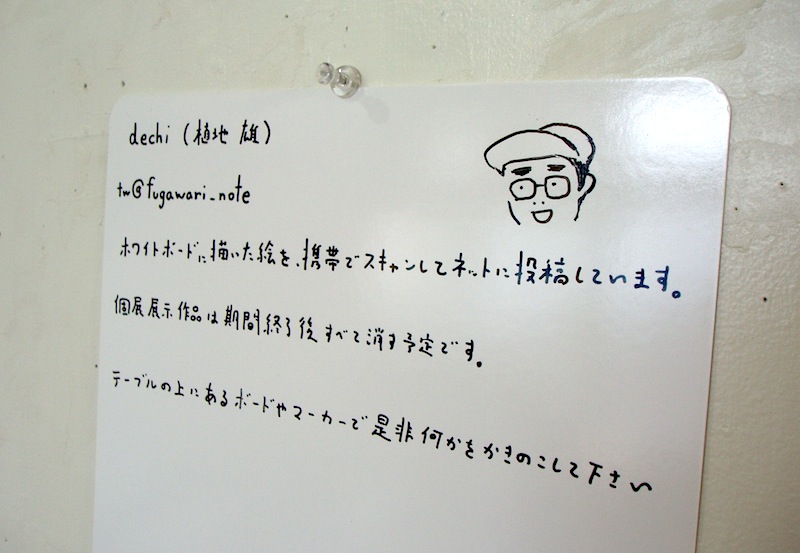 dechi (植地 雄)
tw@fugawari_note
ホワイトボードに描いた絵を、携帯でスキャンしてネットに投稿しています。
個展展示作品は期間終了後すべて消す予定です。
テーブルの上にあるボードやマーカーで是非何かをかきのこして下さい